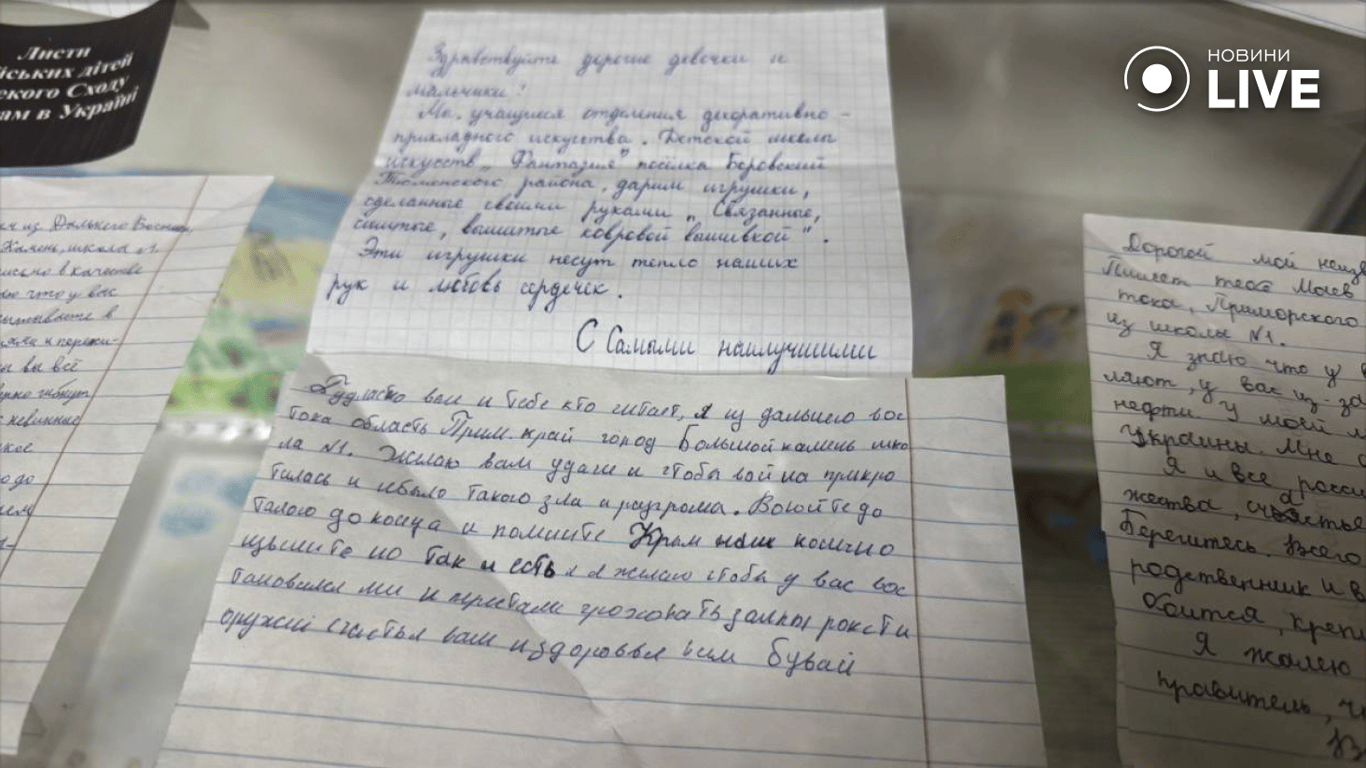 НОВИНИ
LIVE
Листи
ських дітей
ского Сходу
ам в Україні
Здравствуйте дорогие девочки и
мальчики!
Мы, учащиеся отделения декоративно-
прикладного искусства. Детской школы
искусств „Фантазия" посёлка Боровский
Тюменского района, дарим игрушки,
сделанные своими руками „Связанные,
сшитые, вышитые ковровой вышивкой".
Эти игрушки несут тепло наших
рук и любовь сердечек.
С Самыми наилучшими
вам и тебе кто читает, я из дальнего вос
тока область Прим. край город Большой камень шко
ла №1. Желаю вам удачи и чтобы война прикро
тилась и небыло такого зла и разгрома. Воюйте до
талого до конца и помните Крым наш конечно
но так и есть и я желаю чтобы у вас вос
и перестали залпы
оружий счастья вам и здоровья всем бувай
из Дальнего Востока,
Камень, школа №1.
письмо в качестве
что у вас
в
и пережи-
вы всё
гибнут
невинные
до
Дорогой мой
Пишет тебе
тока, Приморского
из школы №1.
Я знаю что у
ляют, у вас из-за
нефти. У моей
Украины. Мне
Я и все
жества, счастье
Берегитесь. Всего
родственник и
боится, креп
Я жалею
правитель, ч